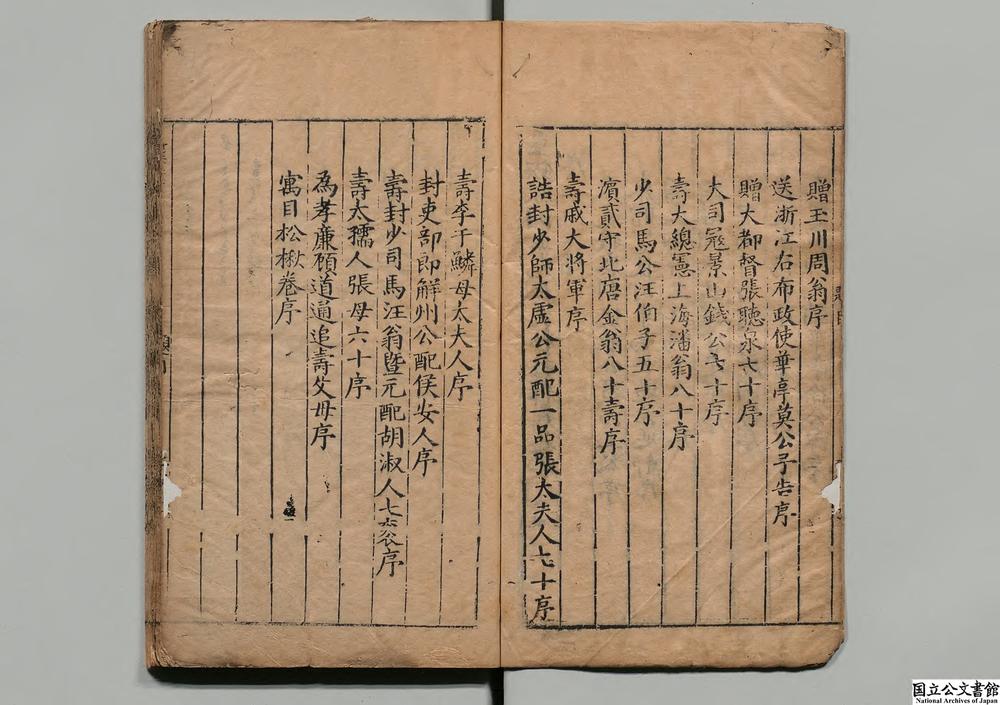 贈玉川周翁序
送浙江右布政使華亭莫公予告序
贈大都督張聽泉六十序
大司寇景山錢公六十序
壽大總憲上海潘翁八十序
少司馬公汪伯子五十序
濵貳守北唐金翁八十壽序
壽戚大將軍序
誥封少師太虛公元配一品張太夫人七十序
壽李于鱗母太夫人序
封吏部郎解州公配侯安人序
壽封少司馬汪翁暨元配胡淑人七袠序
壽太孺人張母六十序
為孝廉顧道通追壽父母序
寓目松楸卷序
国立公文書館
National Archives of Japan